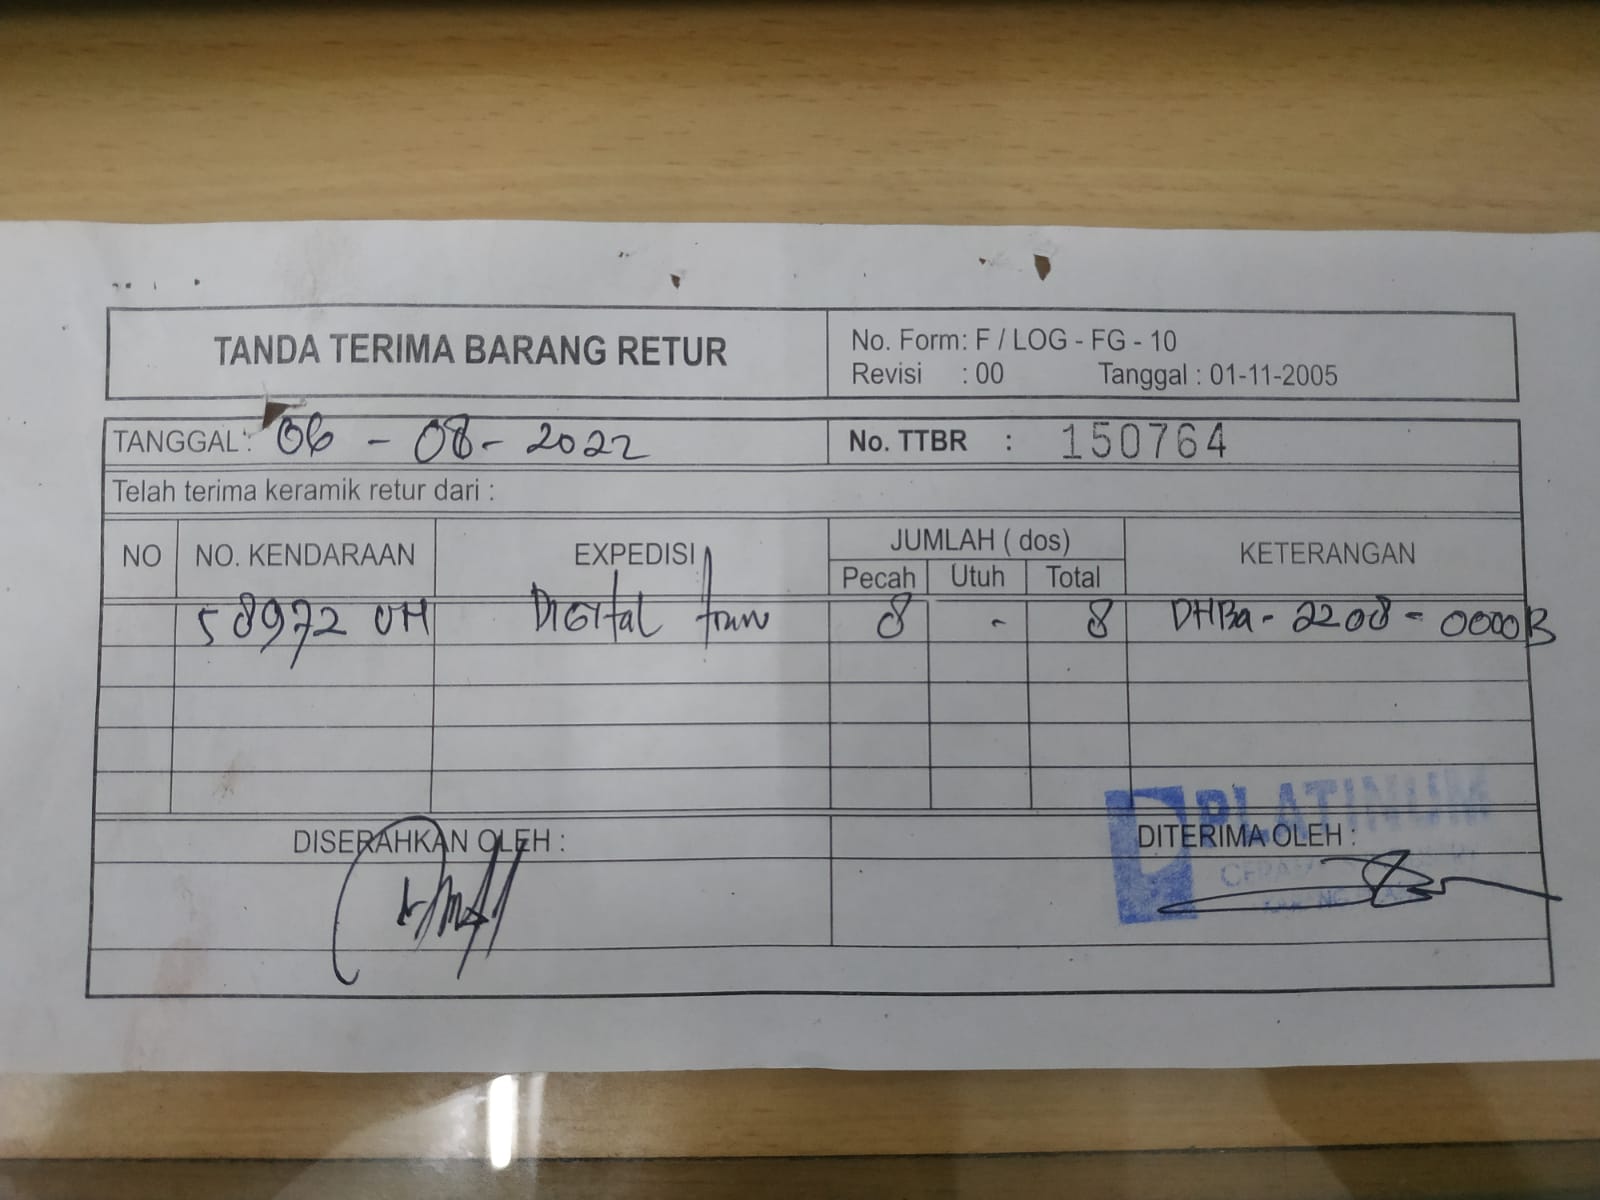 TANDA TERIMA BARANG RETUR
No. Form: F / LOG - FG - 10
Revisi : 00 Tanggal : 01-11-2005
TANGGAL : 06 - 08 - 2022
No. TTBR : 150764
Telah terima keramik retur dari :
NO NO. KENDARAAN EXPEDISI JUMLAH ( dos) KETERANGAN
Pecah Utuh Total
S 8972 UH DIGITal tran 8 - 8 DHBa - 2208 - 0000B
PLATINUM
DISERAHKAN OLEH : DITERIMA OLEH :